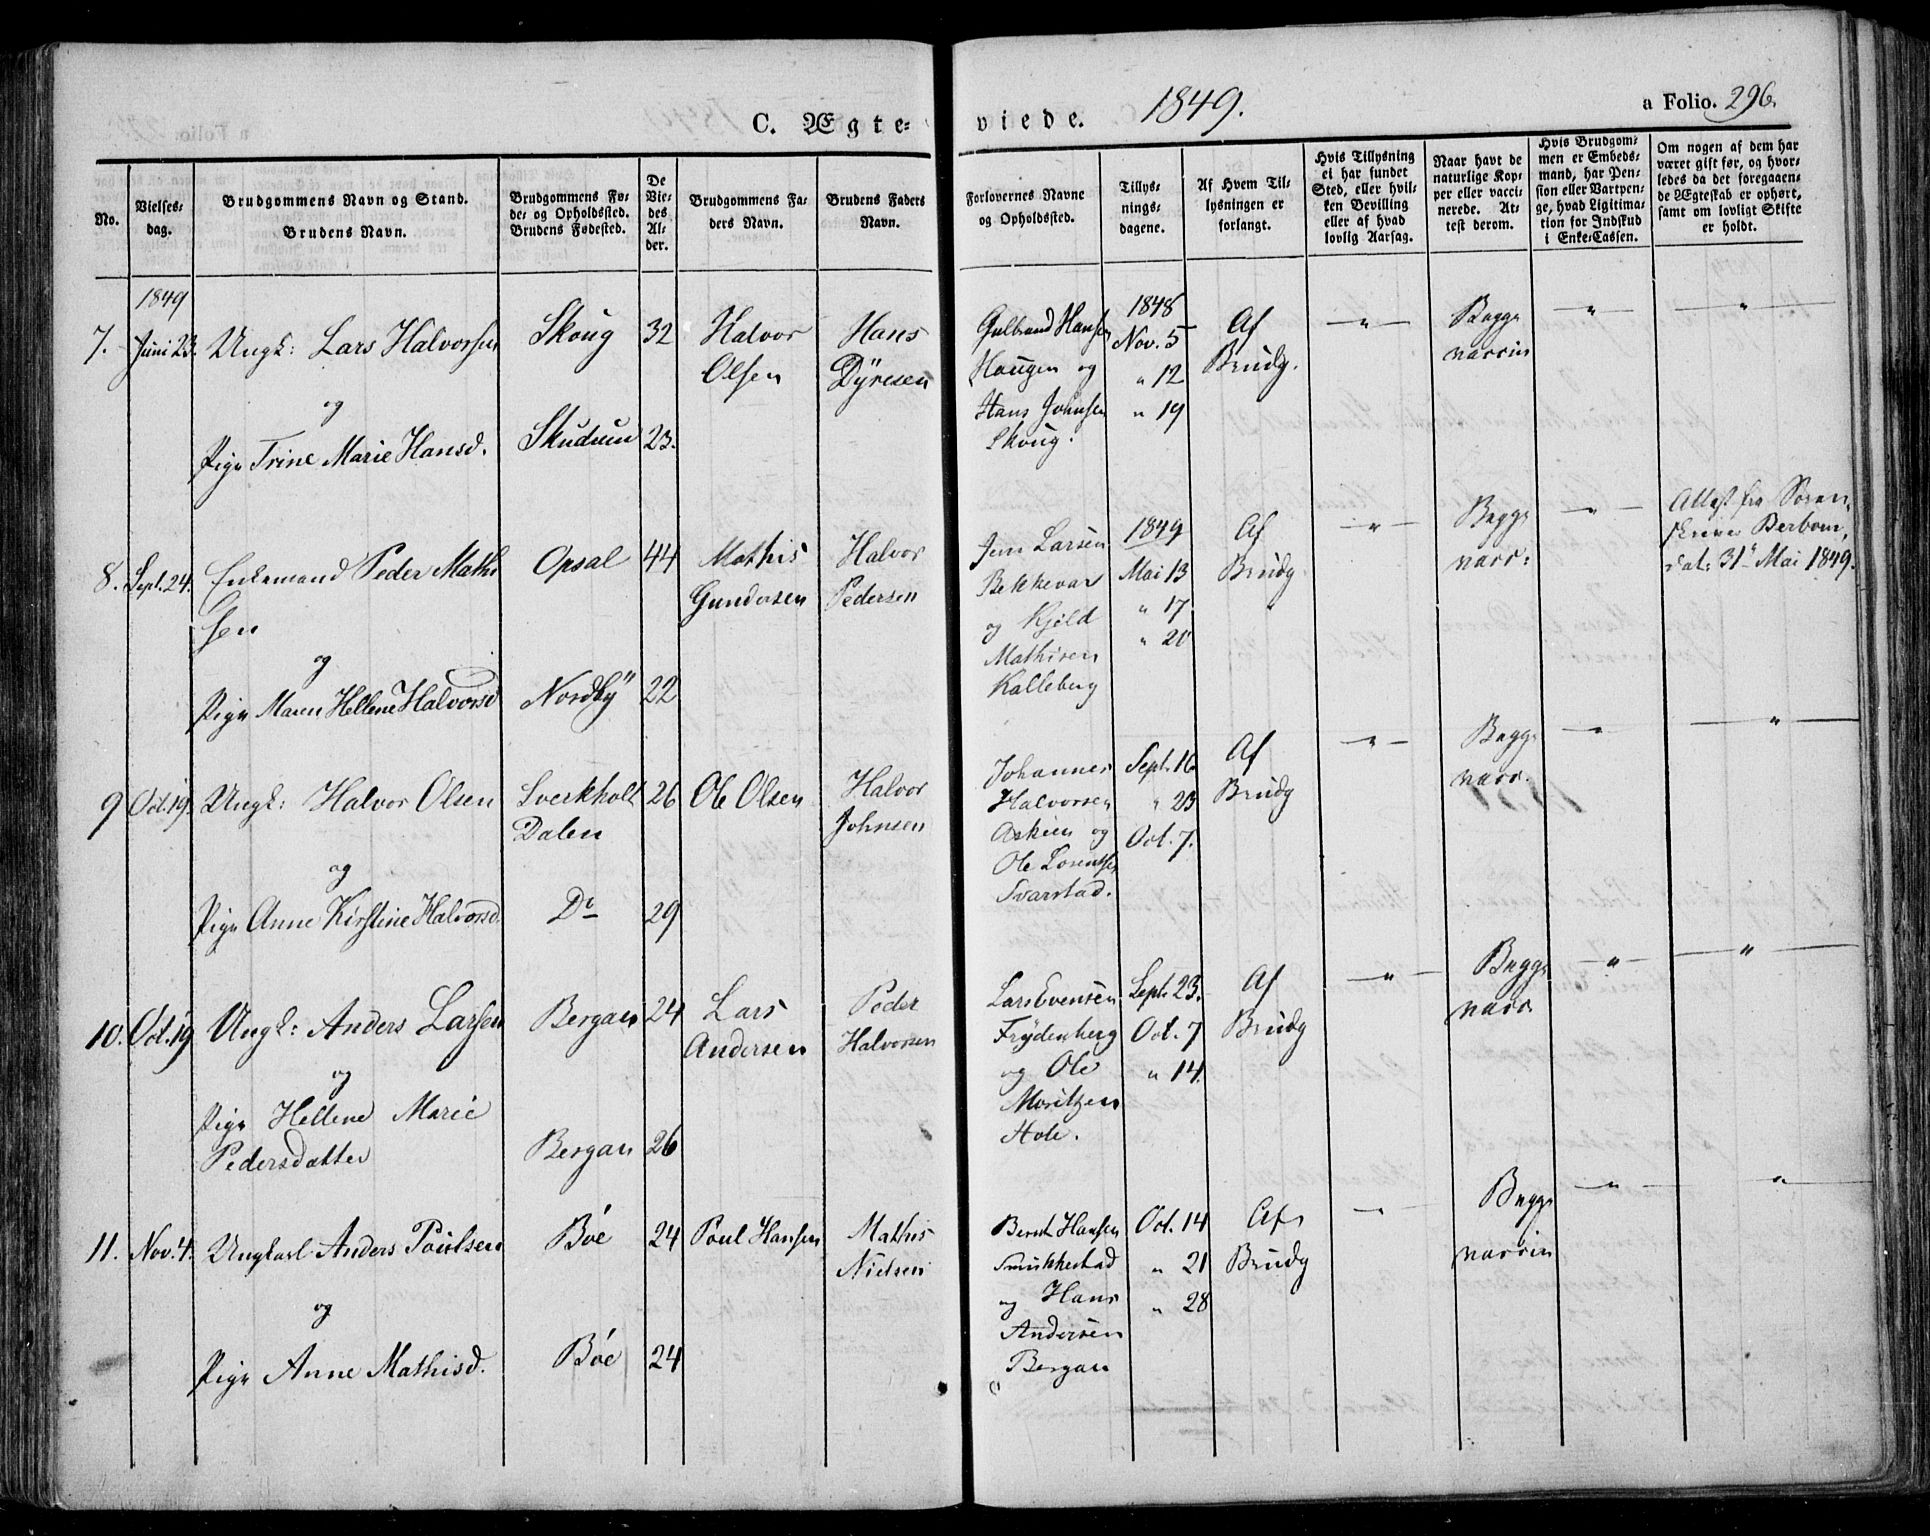 C. Ægte-
viede.
1849.
a Folio. 296.
No.
Vielses-
dag.
Brudgommens Navn og Stand.
Brudens Navn.
Brudgommens Fø-
de- og Opholdsted.
Brudens Fødested.
De
Vie-
des
Al-
der.
Brudgommens Fa-
ders Navn.
Brudens Faders
Navn.
Forlovernes Navne
og Opholdsted.
Tillys-
nings-
dagene.
Af Hvem Til-
lysningen er
forlangt.
Hvis Tillysning
ei har fundet
Sted, eller hvil-
ken Bevilling
eller af hvad
lovlig Aarsag.
Naar havt de
naturlige Kop-
per eller vacci-
nerede. At-
test derom.
Hvis Brudgom-
men er Embeds-
mand, har Pen-
sion eller Vartpen-
ge, hvad Legitima-
tion for Indskud
i Enke-Cassen.
Om nogen af dem har
været gift før, og hvor-
ledes da det foregaaen-
de Ægteskab er ophørt,
samt om lovligt Skifte
er holdt.
1849
7. Juni 23. Ungk: Lars Halvorsen
og
Pige Trine Marie Hansd.
Skoug 32
Skudum 23.
Halvor
Olsen
Hans
Dÿresen
Gulbrand Hansen
Haugen og
Hans Johnsen
Skoug.
1848
Nov. 5
" 12
" 19
Af
Brudg.
"
Begge
vaccin
"
"
8. Sept. 24. Enkemand Peder Mathi
sen
og
Pige Maren Hellene Halvorsd
Opsal 44
Nordbÿ 22
Mathis
Gundersen
Halvor
Pedersen
Jens Larsen
Bekkevar
og Kjeld
Mathisen
Kalleberg
1849
Mai 13
" 17
" 20
Af
Brudg
"
Begge
vacc:
"
Attest fra Soren-
skriver Berbom,
dat. 31te Mai 1849.
9 Oct. 19. Ungk: Halvor Olsen
og
Pige Anne Kirstine Halvorsd
Sverkholt 26
Dalen
Do 29
Ole Olsen
Halvor
Johnsen
Johannes
Halvorsen
Askien og
Ole Lorentsen
Svarstad.
Sept. 16
" 23
Oct. 7.
Af
Brudg
"
Begge
vacc.
"
"
10. Oct. 19 Ungk: Anders Larsen
og
Pige Hellene Marie
Pedersdatter
Bergan 24
Bergan 26
Lars
Andersen
Peder
Halvorsen
Lars Evensen
Frydenberg
og Ole
Moritzen
Hole.
Sept. 23.
Oct. 7
" 14.
Af
Brudg
"
Begge
vacc
"
"
11. Nov. 4. Ungkarl Anders Poulsen
og
Pige Anne Mathisd.
Bøe 24
Bøe 24
Poul Hansen
Mathis
Nielsen
Bernt Hansen
og Hans
Andersen
Bergan
Oct. 14
" 21
" 28
Af
Brudg
"
Begge
vaccin
"
"